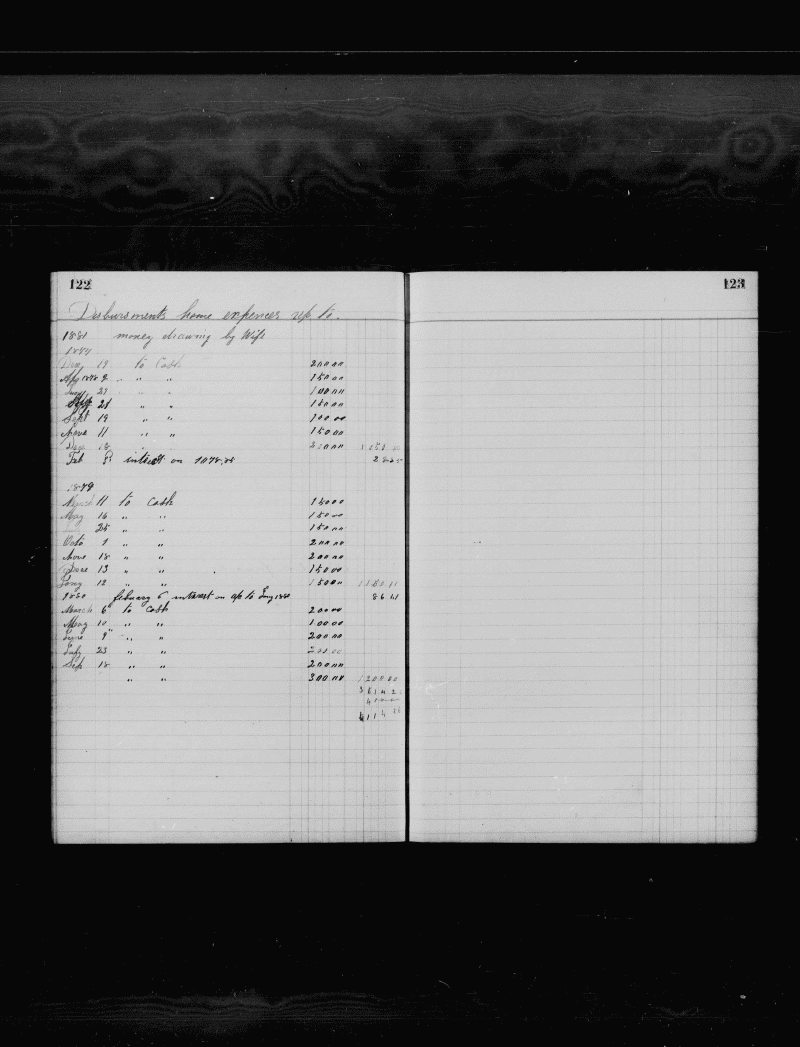 122
Disbursments home expences up to.
1881 money drawing by Wife
18
19 to Cash 200 00
Apg 1878 2 " " " 150 00
27 " " 100 00
21 " " 150 00
Sept 19 " " 100 00
Nove 11 " " 150 00
Dec 18 " 200 00
Feb 8 intrest on 1078.25 28 25
1879
March 11 to Cash 150 00
May 16 " " 150 00
25 " " 150 00
Octo 1 " " 200 00
Nove 18 " " 200 00
Dece 13 " " 150 00
Jany 12 " " 150 00
1880 febuary 6 intrest on up to Jany 1880 86 41
March 6 to Cash 200 00
May 10 " " 100 00
June 9 " " 200 00
July 23 " " 200 00
Sep 18 " " 200 00
" " 300 00 1200 00
123